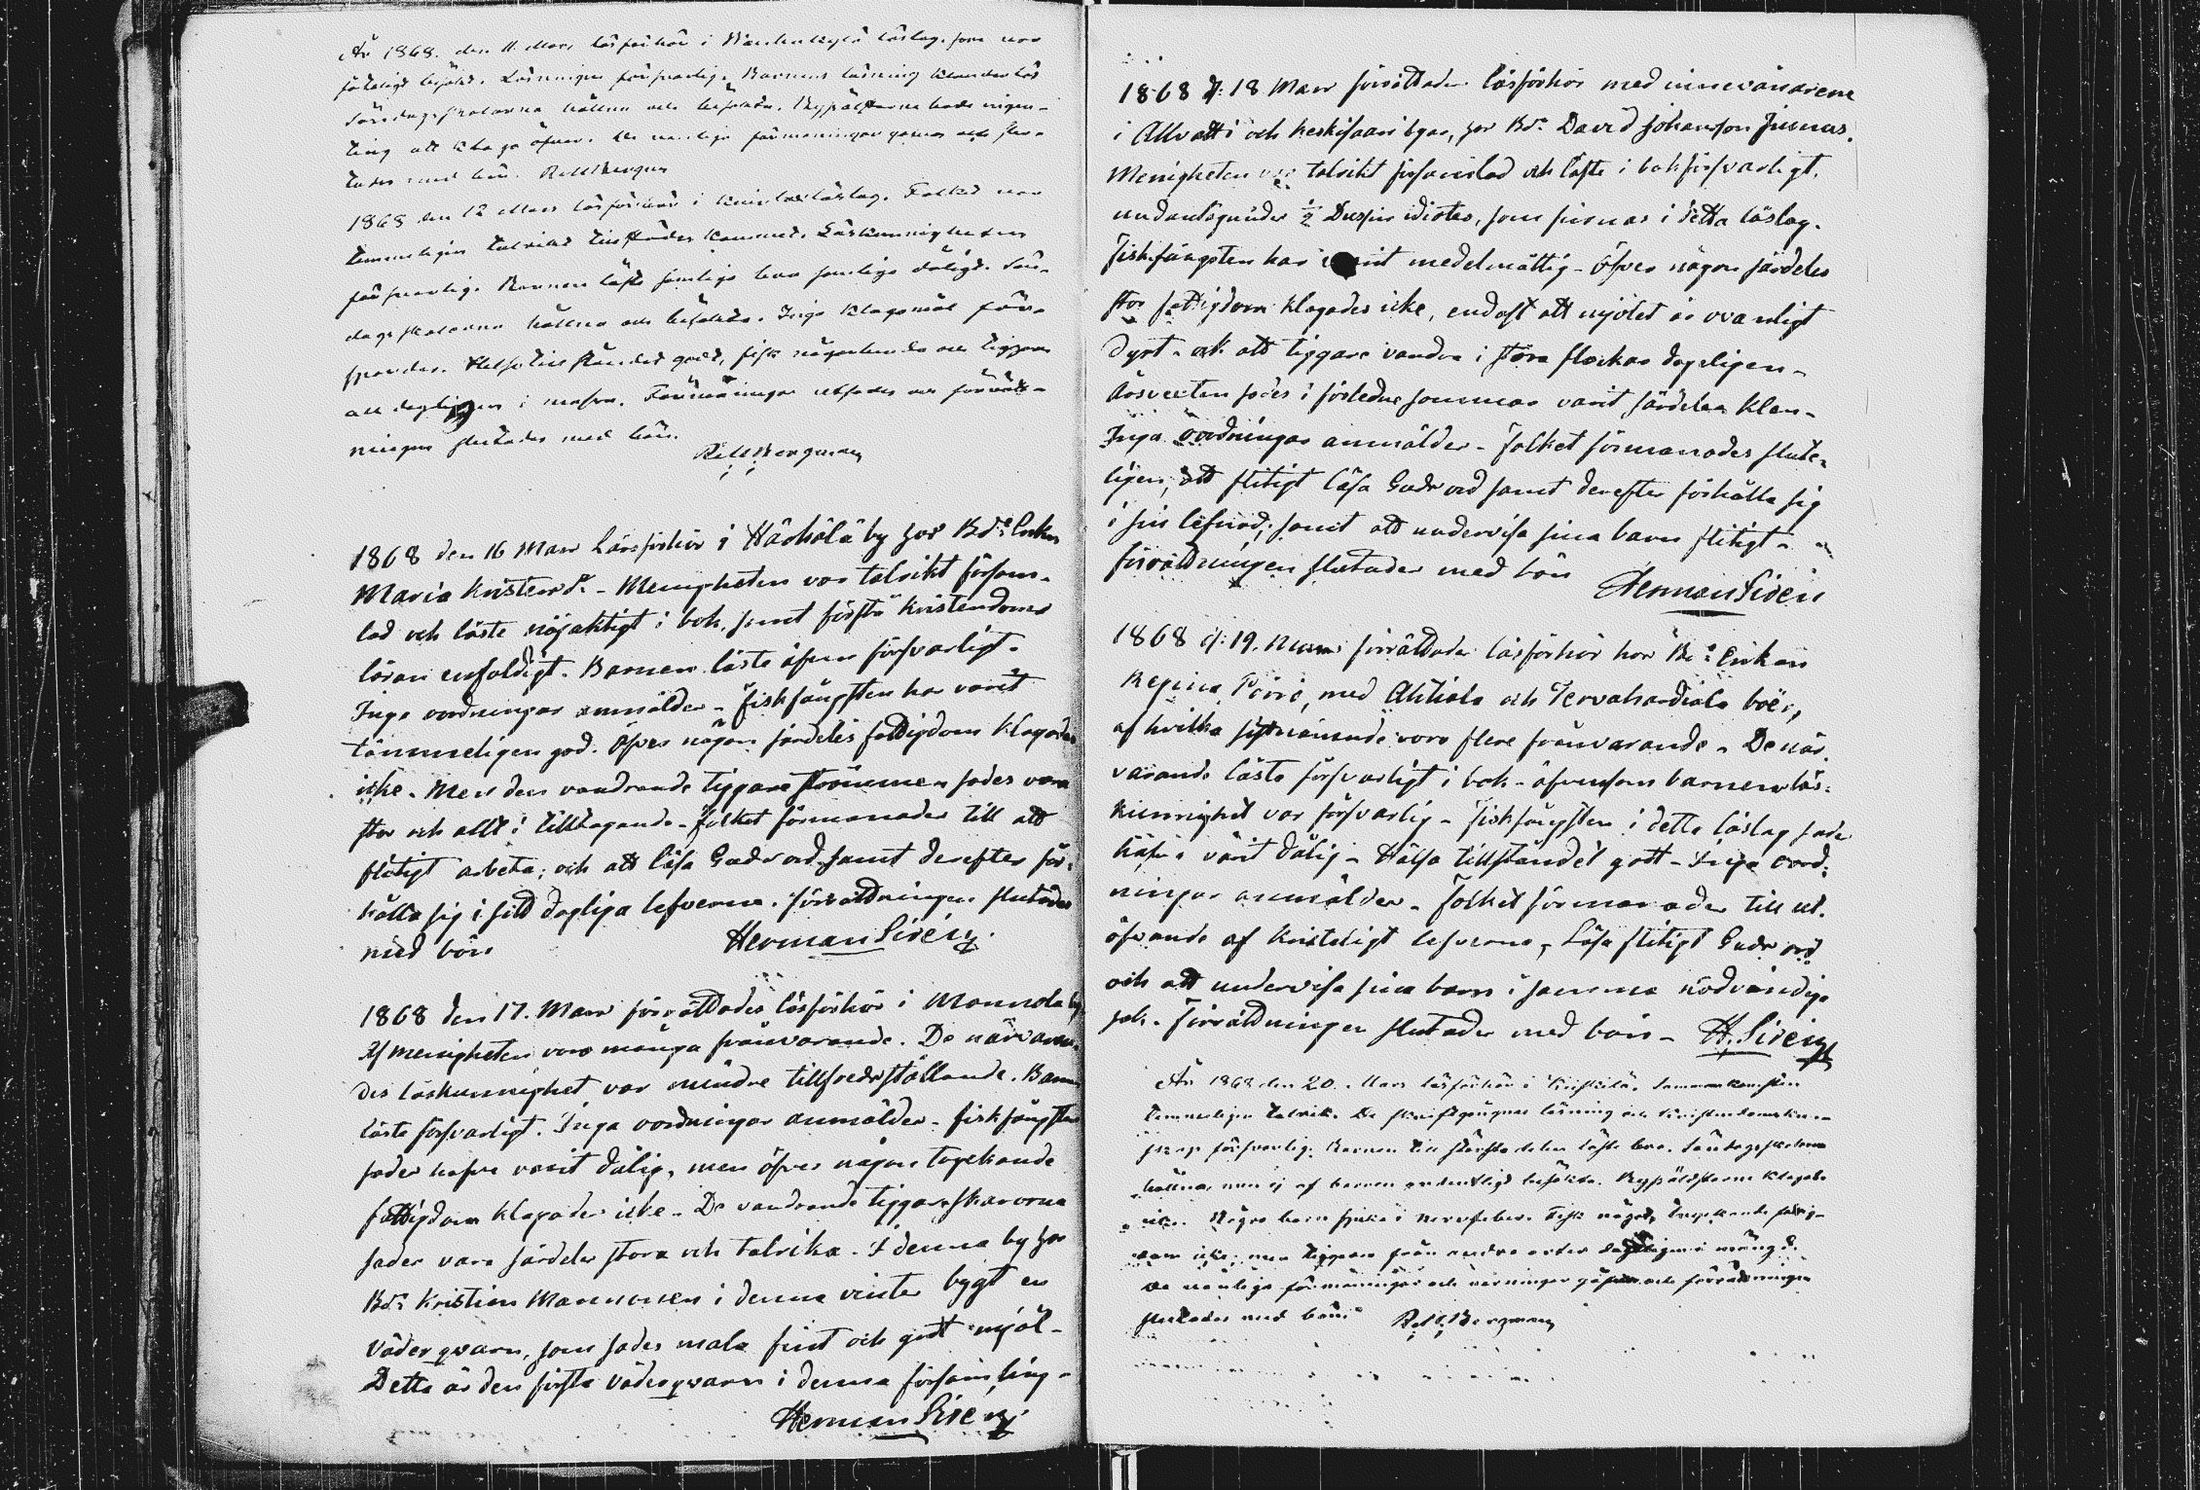 År 1868. den 11. Mars läsförhör i läslag. som var
besökt. Läsningen försvarlig. Barnens läsning
Söndagsskolorna hållna och besökta. hade ingen-
ting att klaga öfver. De vanliga förmaningar gåfvos och slu-
tades med bön. Bergman
1868 den 12 Mars läsförhör i läslag. Folket var
temmeligen talrikt tillstädes kommet. Läskunnigheten
försvarlig. Barnen läste somliga bra somliga dåligt. Sön-
dagsskolorna hållna och besökta. Inga klagomål för-
spordes. Helsotillståndet godt, fisk någorlunda och tiggare
dagligen i massa. Förmaningar och förrätt-
ningen slutades med bön.
Bergman
1868 den 16 Mars Läsförhör i Härkälä by hos Bds Enkan
Maria Kristersd. - Menigheten var talrikt försam-
lad och läste nöjaktigt i bok, samt första Kristendoms
läran enfaldigt. Barnen läste äfven försvarligt.
Inga oordningar anmäldes - fiskfångsten har varit
tämmeligen god. Öfver någon särdeles fattigdom klagades
icke. Men den vandrande tiggareströmmen sades vara
stor och allt i tilltagande - folket förmanades till att
flitigt arbeta, och att läsa Guds ord samt derefter för-
hålla sig i sitt dagliga lefverne. Förrättningen slutades
med bön Herman Sirén.
1868 den 17. Mars förrättades läsförhör i Mannola by
Af menigheten voro många frånvarande. De närvaran-
des läskunnighet var mindre tillfredsställande. Barnen
läste försvarligt. Inga oordningar anmäldes - fiskfångsten
sades hafva varit dålig, men öfver någon tryckande
fattigdom klagades icke - De vandrande tiggareskarorna
sades vara särdeles stora och talrika. I denna by har
Bds Kristian Mannonen i denna vinter bygt en
väderqvarn, som sades mala fint och godt mjöl -
Detta är den första väderqvarn i denna församling -
Herman Sirén
1868 d: 18 Mars förrättades läsförhör med innevånarene
i Allvatti och Keskisaari byar, hos Bds David Johansson Junnus.
Menigheten var talrikt församlad och läste i bok försvarligt,
undantagandes ½ Dussin idioter, som finnas i detta läslag.
Fiskfångsten har varit medelmåttig - Öfver någon särdeles
stor fattigdom klagades icke, endast att mjölet är ovanligt
dyrt - och att tiggare vandra i stora flockar dageligen -
Årsvexten sades i förledne sommar varit särdeles klen -
Inga oordningar anmäldes - Folket förmanades slute-
ligen, att flitigt läsa Guds ord samt derefter förhålla sig
i sin lefnad, samt att undervisa sina barn flitigt -
förrättningen slutades med bön Herman Sirén
1868 d: 19. Mars förrättades läsförhör hos Bds Enkan
Regina Pörrö, med Ahtiala och Tervahardiala boer,
af hvilka sistnämnde voro flere frånvarande - De när-
varande läste försvarligt i bok - äfvensom barnens läs-
kunnighet var försvarlig - Fiskfångsten i detta läslag sades
hafva varit dålig - Hälso tillståndet godt - Inga oord-
ningar anmäldes - Folket förmanades till ut-
öfvande af Kristeligt lefverne, Läsa flitigt Guds ord
och att undervisa sina barn i samma nödvändiga
sak. Förrättningen slutades med bön - H. Sirén
År 1868 den 20. Mars läsförhör i Sammankomsten
temmeligen talrik. De skriftgångnas läsning och kristendomskun-
skap försvarlig. Barnen till största delen läste bra. Söndagsskolorna
hållna, men ej af barnen ordentligt besökta. klagade
icke. Några barn sjuka i nervfeber. Fisk något, tryckande fattig-
dom icke, men tiggare från andra orter dageligen i mängd.
De vanliga förmaningar och varningar gåfvos och förrättningen
slutades med bön. Bergman